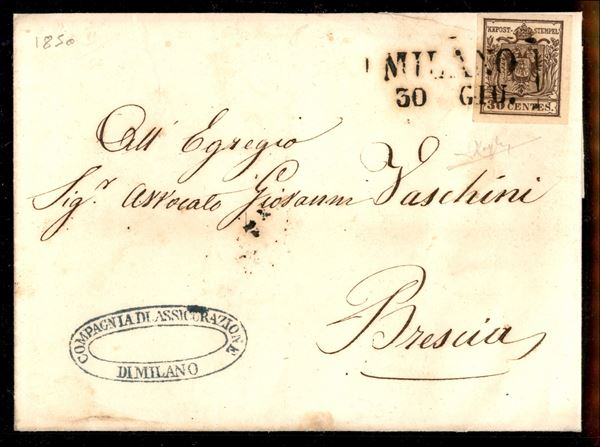 1850
KKPOST-STEMPEL
MILANO
30 GIU.
30 CENTES.
All' Egregio
Sig.r Avvocato Giovanni Vaschini
Brescia
COMPAGNIA DI ASSICURAZIONE
DI MILANO